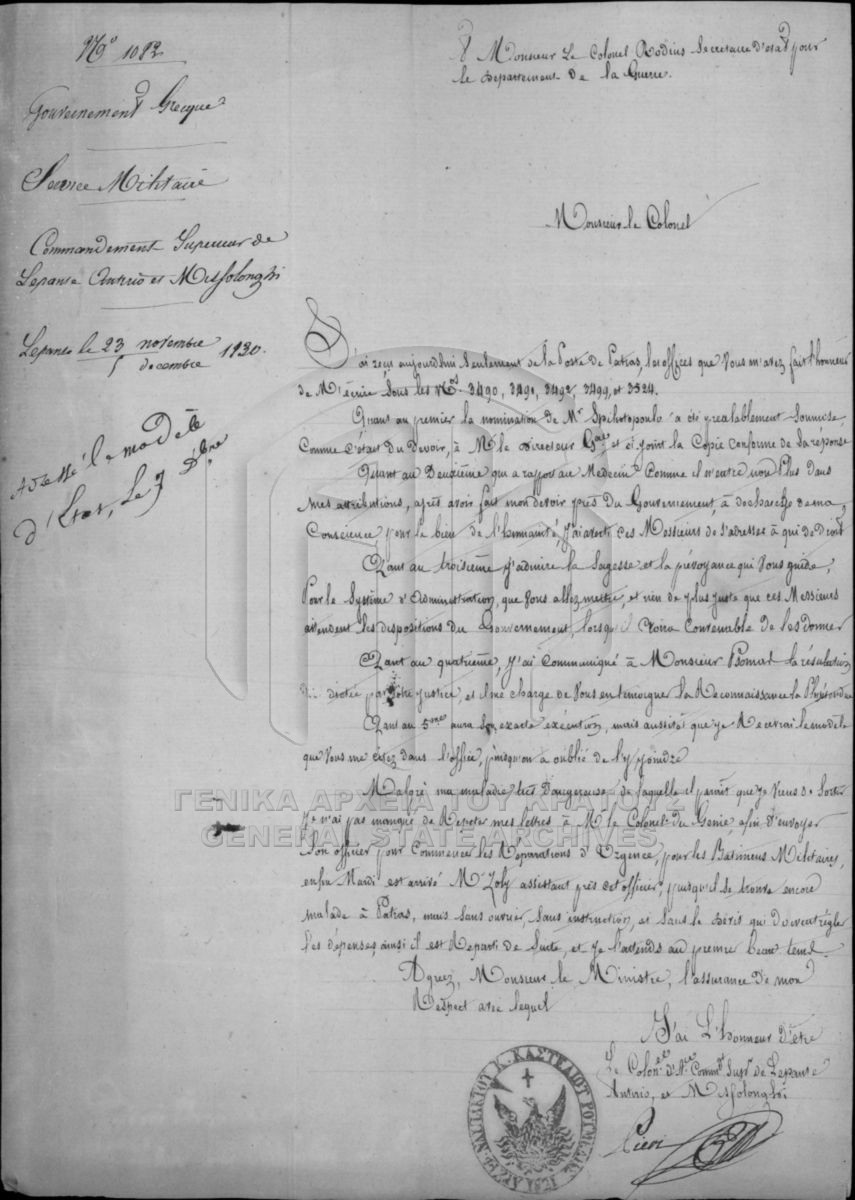 N.º 1082
Gouvernement Grecque
Service Militaire
Commandement Superieur de
Lepante Antirio et Missolonghi
Lepante le 23 novembre
5 decembre 1830.
Adressé le modèle
d'Etat, le 7 Xbre
A Monsieur Le Colonel Rodius Secretaire d'etat pour
le Departement de la Guerre.
Monsieur le Colonel
J'ai reçu aujourd'hui Seulement de la Poste de Patras, les offices que Vous m'avez fait l'honneur
de M'écrire Sous les Nos. 3490, 3491, 3492, 3499, et 3524.
Quant au premier la nomination de Mr Spiliotopoulo a été prealablement Soumise,
Comme c'était du Devoir, à Mr. le Directeur Gal et ci joint la Copie conforme de Sa réponse
Quant au Deuxième qui a rapport au Medecin Comme il n'entre non Plus dans
Mes attributions, après avoir fait mon devoir près du Gouvernement, à decharge de ma
Conscience pour le bien de l'humanité, J'ai averti ces Messieurs de S'adresser à qui de Droit
Quant au troisième J'admire la Sagesse et la prévoyance qui Vous guide,
Pour le Système d'Administration, que Vous allez mettre, et rien de plus juste que ces Messieurs
attendent les dispositions du Gouvernement, lorsqu'il Croira Convenable de les donner
Quant au quatrième, J'ai Communiqué à Monsieur Psomas la résolution
dictée par Votre justice, et il me charge de Vous en temoigner la Reconnaissance la
Quant au 5me aura Son exacte exécution, mais aussitôt que Je Recevrai le modele
que Vous me citez dans l'office, puisqu'on a oublié de l'y joindre
Malgré ma maladie très Dangereuse, de laquelle il parait que Je Viens de Sortir
Je n'ai pas manqué de Repeter mes lettres à Mr. le Colonel du Genie, afin d'envoyer
Son officier pour Commencer les Reparations d'Urgence, pour les Batimens Militaires,
enfin Mardi est arrivé Mr. Zoly assistant près cet officier, puisqu'il se trouve encore
malade à Patras, mais Sans ouvrier, Sans instruction, et Sans le Devis qui Doivent régler
les dépenses, ainsi il est Reparti de Suite, et Je l'attends au premier beau tems.
Agreez, Monsieur le Ministre, l'assurance de mon
Respect avec lequel
J'ai L'honneur D'être
Le Colonel d'Arie Commt Supr de Lepante
Antirio, et Missolonghi
Pieri
ΓΕΝΙΚΑ ΑΡΧΕΙΑ ΤΟΥ ΚΡΑΤΟΥΣ
GENERAL STATE ARCHIVES
ΝΑΥΠΑΚΤΟΥ Κ. ΚΑΣΤΕΛΙΟΥ ΡΟΥΜΕΛΗΣ